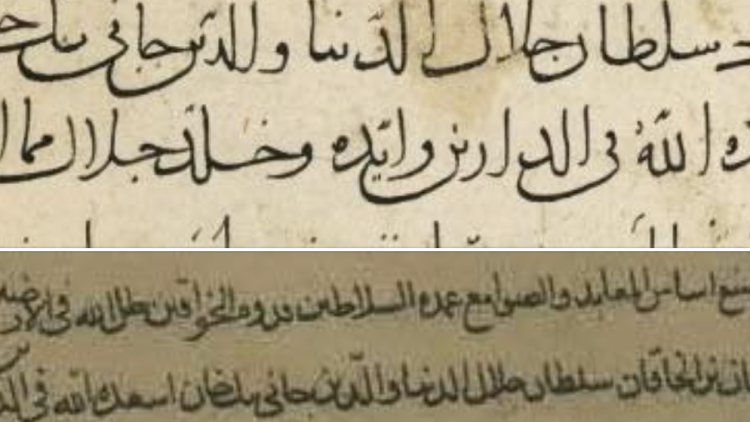 سلطان جلال الدنيا والدين جاني بك خـ
ه الله في الدارين وايده وخلد جلال مما
اساس المعابد والصوامع عمده السلاطين قدوه الخواقين ظل الله في الارضين
بن الخاقان سلطان جلال الدنيا والدين جاني بك خان اسعده الله في الد